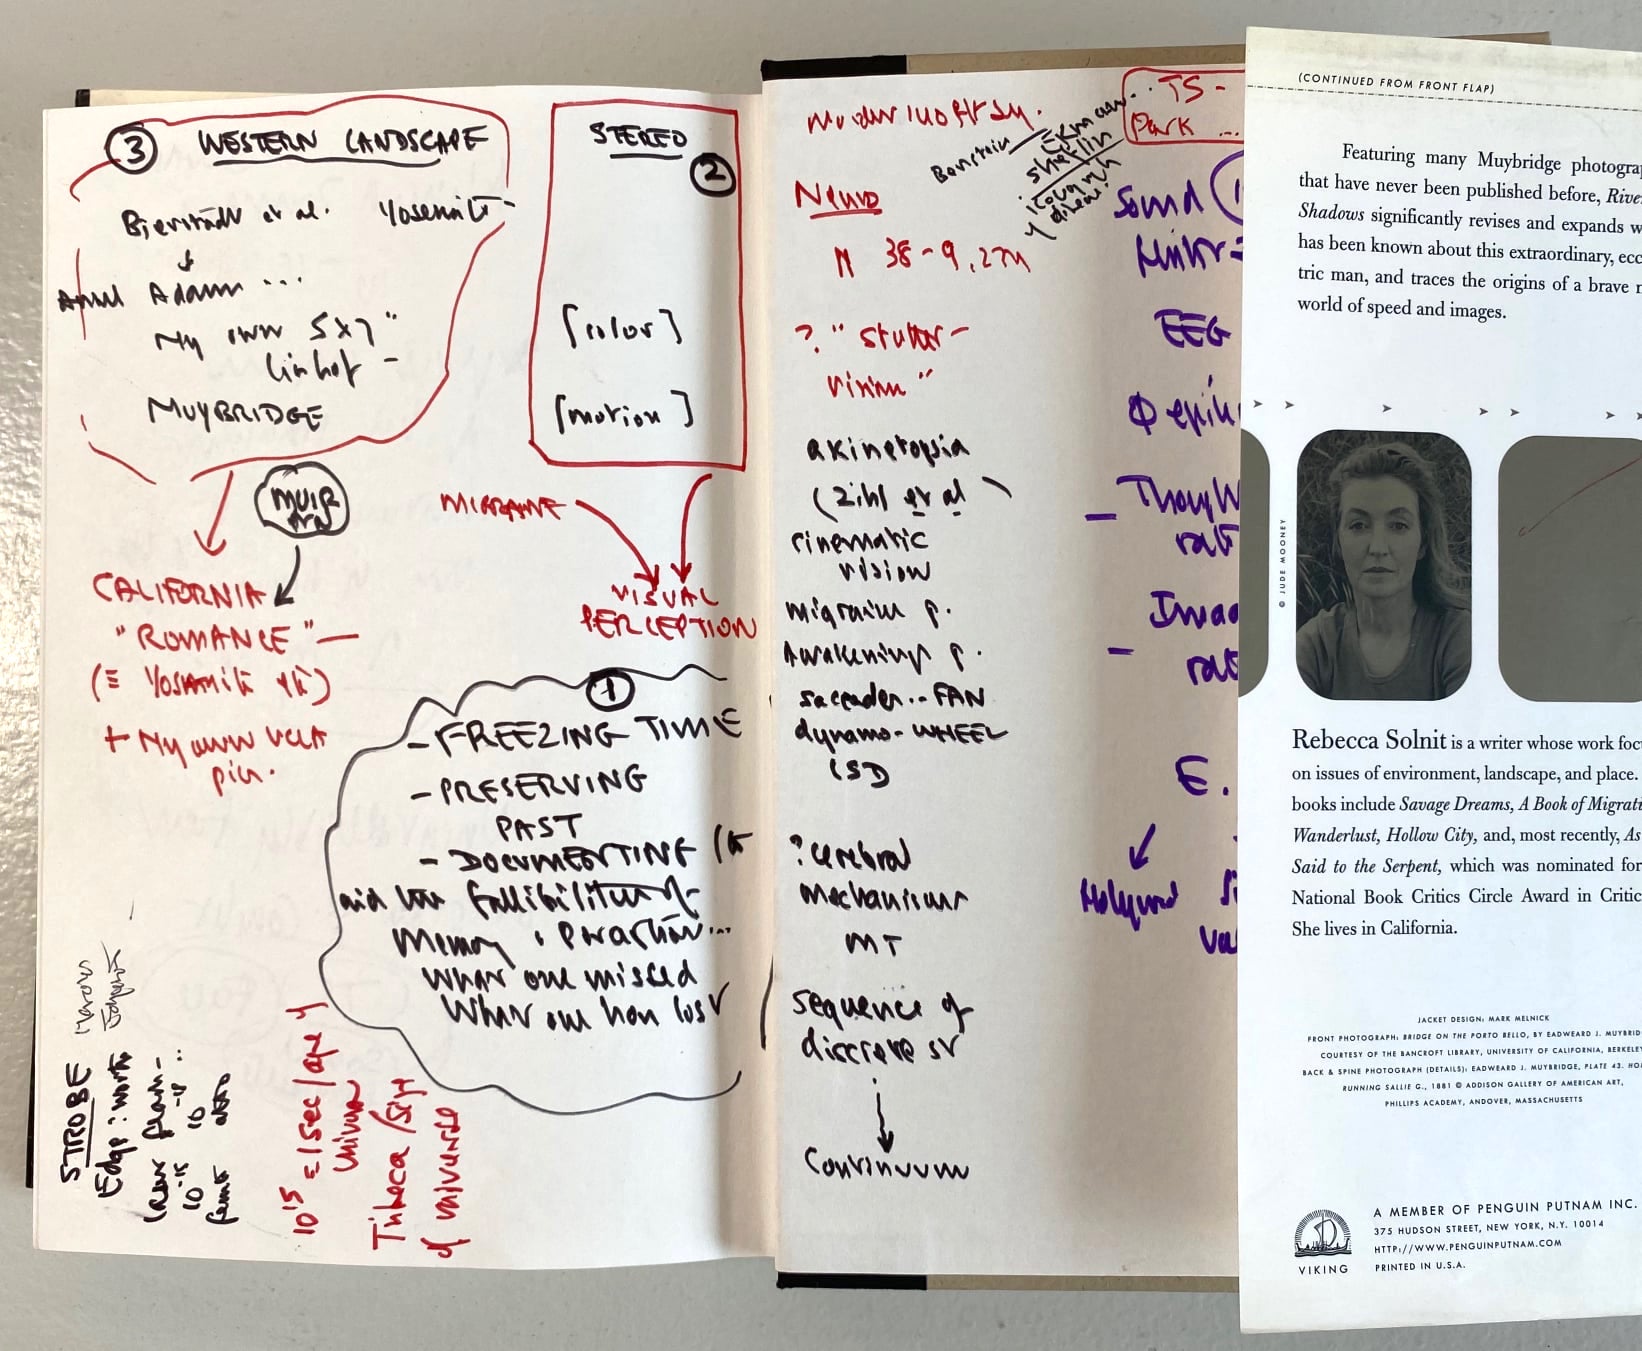 ③ WESTERN LANDSCAPE
Bierstadt et al. Yosemite -
Ansel Adams ...
My own 5x7"
Linhof -
MUYBRIDGE
STEREO
②
[color]
[motion]
MUIR
MIGRAINE
VISUAL
PERCEPTION
CALIFORNIA
"ROMANCE" —
(≡ Yosemite etc)
+ My own UCLA
pix.
①
- FREEZING TIME
- PRESERVING
PAST
- DOCUMENTING
aid the fallibilities of
Memory
What one missed
What one has lost
STROBE
Edge: work
10
10 -15
10 15 = 1 sec / age of
universe
/ size
of universe
TS -
Park ...
Neuro
? "Stutter -
vision"
akinetopsia
(Zihl et al)
cinematic
vision
migraine p.
Awakenings p.
saccades .. FAN
dynamo - WHEEL
LSD
? cerebral
mechanisms
MT
sequence of
discrete st
↓
Continuum
Sound
EEG
—
—
E.
(CONTINUED FROM FRONT FLAP)
Featuring many Muybridge photogra
that have never been published before, Rive
Shadows significantly revises and expands w
has been known about this extraordinary, ecc
tric man, and traces the origins of a brave n
world of speed and images.
© JUDE MOONEY
Rebecca Solnit is a writer whose work foc
on issues of environment, landscape, and place.
books include Savage Dreams, A Book of Migrati
Wanderlust, Hollow City, and, most recently, As
Said to the Serpent, which was nominated for
National Book Critics Circle Award in Critic
She lives in California.
JACKET DESIGN: MARK MELNICK
FRONT PHOTOGRAPH: BRIDGE ON THE PORTO BELLO, BY EADWEARD J. MUYBRID
COURTESY OF THE BANCROFT LIBRARY, UNIVERSITY OF CALIFORNIA, BERKELEY
BACK & SPINE PHOTOGRAPH (DETAILS): EADWEARD J. MUYBRIDGE, PLATE 43. HO
RUNNING SALLIE G., 1881 © ADDISON GALLERY OF AMERICAN ART,
PHILLIPS ACADEMY, ANDOVER, MASSACHUSETTS
VIKING
A MEMBER OF PENGUIN PUTNAM INC.
375 HUDSON STREET, NEW YORK, N.Y. 10014
HTTP://WWW.PENGUINPUTNAM.COM
PRINTED IN U.S.A.